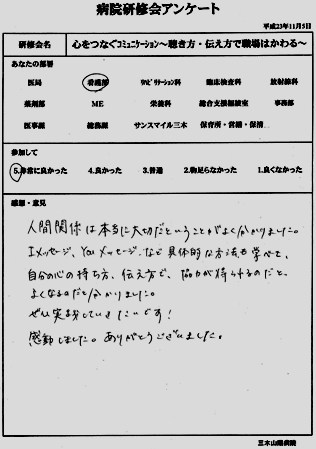 病院研修会アンケート
平成23年11月5日
研修会名 心をつなぐコミュニケーション～聴き方・伝え方で職場はかわる～
あなたの部署
医局 看護部 リハビリテーション科 臨床検査科 放射線科
薬剤部 ME 栄養科 総合支援相談室 事務部
医事課 総務課 サンスマイル三木 保育所・営繕・保清
参加して
5.非常に良かった 4.良かった 3.普通 2.物足らなかった 1.良くなかった
感想・意見
人間関係は本当に大切だということがよく分かりました。
Iメッセージ、Youメッセージなど具体的な方法も学べて、
自分の心の持ち方、伝え方で、協力が得られるのだと、
よくなるのだと分かりました。
ぜひ実践していきたいです!
感動しました。ありがとうございました。
三木山陽病院